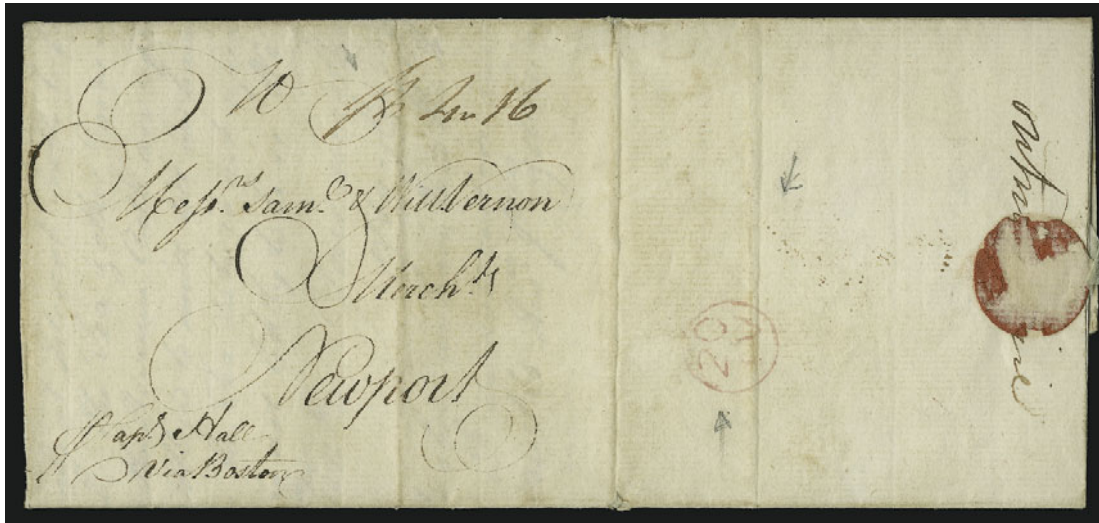 To
Sh 4 16
Messrs. Saml. & Will Vernon
Mercht.s
Newport
Capt. Hall
Via Boston
20